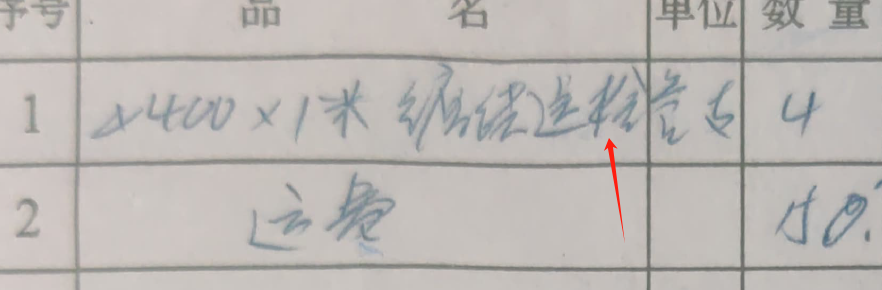 序号 品名 单位 数量
1 ∅400×1米 缠绕送检管 支 4
2 运费 150.